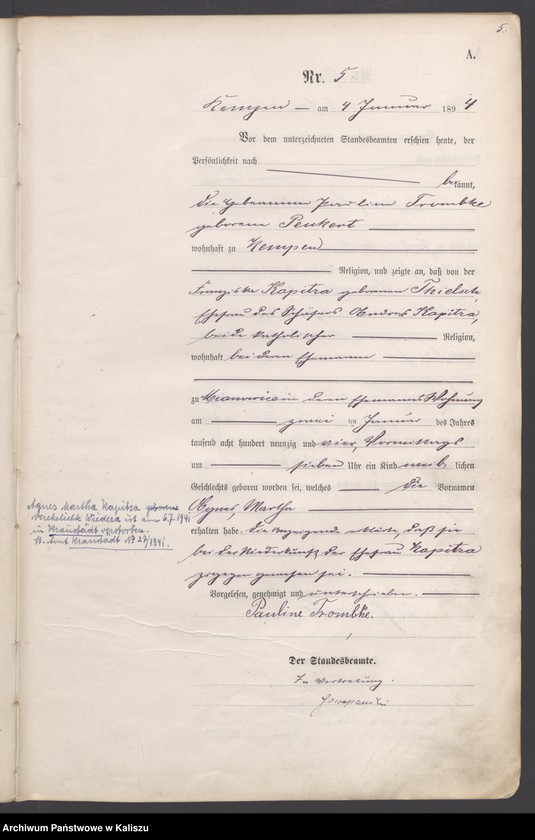 5.
A.
Nr. 5
Kempen am 4 Januar 1894
Vor dem unterzeichneten Standesbeamten erschien heute, der
Persönlichkeit nach
bekannt,
die Hebamme Pauline Trombke
geborene Peukert
wohnhaft zu Kempen
Religion, und zeigte an, daß von der
Franziska Kapitza geborenen Thielsch,
Ehefrau des Schäfers Andreas Kapitza,
beide katholischer Religion,
wohnhaft bei deren Ehemann
zu in deren Ehemanns Wohnung
am zwei ten Januar des Jahres
tausend acht hundert neunzig und vier, Vormittags
um sieben Uhr ein Kind weib lichen
Geschlechts geboren worden sei, welches die Vornamen
Agnes Martha
erhalten habe. Die Anzeigende erklärte, daß sie
bei der Niederkunft der Ehefrau Kapitza
zugegen gewesen sei.
Vorgelesen, genehmigt und unterschrieben.
Pauline Trombke.
Der Standesbeamte.
In Vertretung.
Agnes Martha Kapitza geborene
verehelichte ist am 6.7.1941
in Kranstädt verstorben.
St. Amt Kranstädt Nr 27/1941.
Archiwum Państwowe w Kaliszu